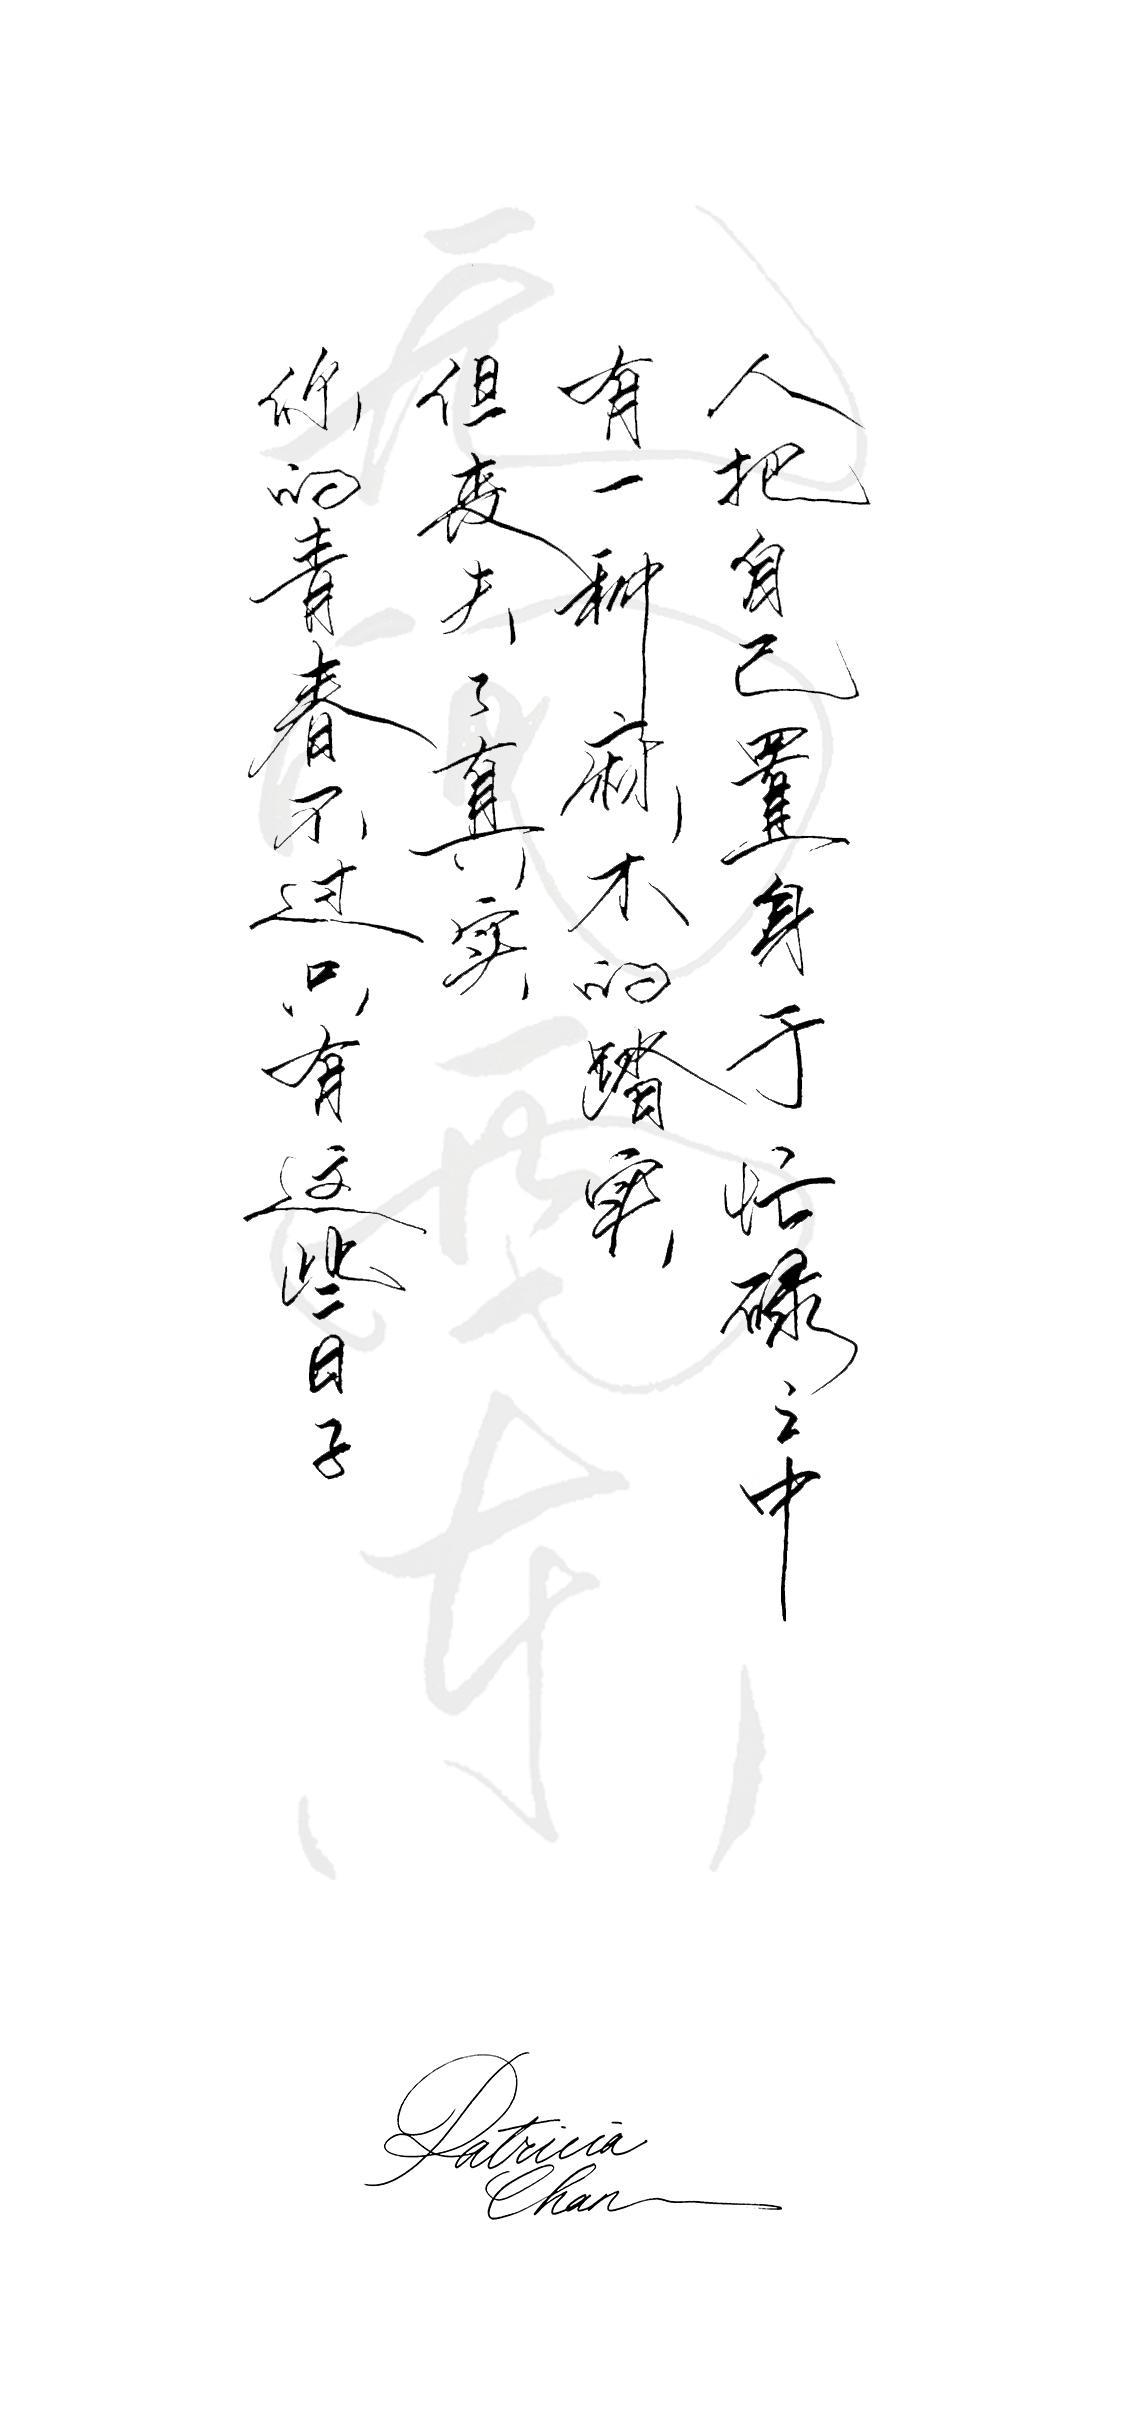 人把自己置身于忙碌之中
有一种麻木的踏实
但丧失了真实
你的青春不过只有这些日子
Patricia
Chan